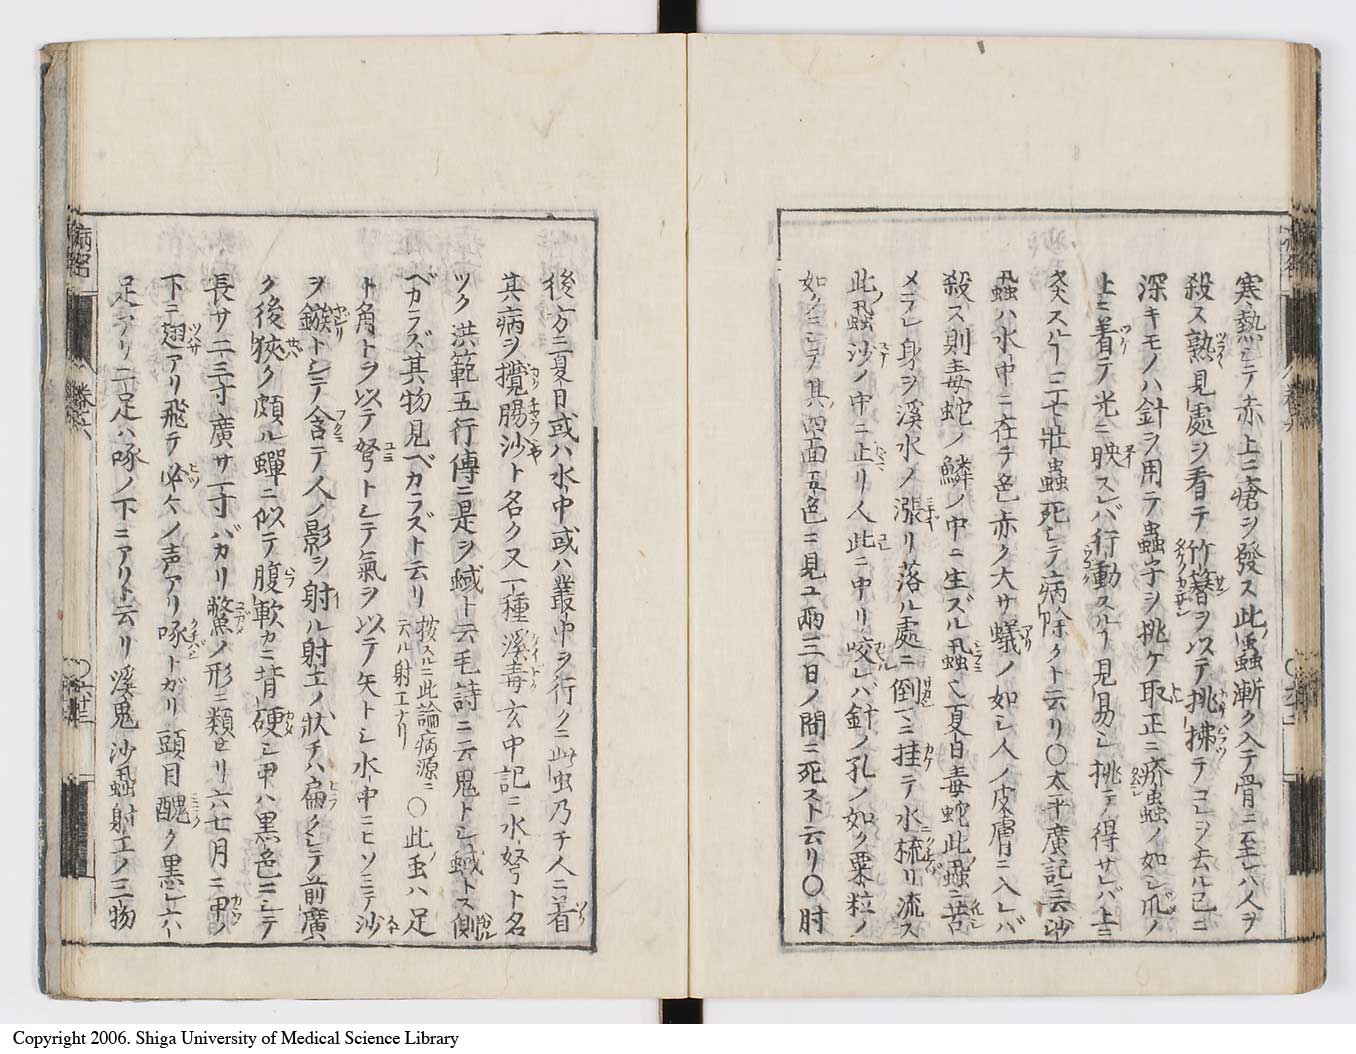 寒熱シテ赤上ニ瘡ヲ發ス此蟲漸ク入テ骨ニ至レハ人ヲ
殺ス熟見處ヲ看テ竹簪ヲ以テ挑拂テコレヲ去ル已ニ
深キモノハ針ヲ用テ蟲子ヲ挑ケ取正ニ疥蟲ノ如シ爪ノ
上ニ着テ光ニ映スレバ行動スルヿ見易シ挑テ得サレバ上ニ
灸スルヿ三七壯蟲死シテ病除クト云リ〇太平廣記ニ云沙
虱蟲ハ水中ニ在テ色赤ク大サ蟻ノ如シ人ノ皮膚ニ入レバ
殺ス則毒蛇ノ鱗ノ中ニ生ズル虱蟲也夏日毒蛇此蟲ニ苦
メラレ身ヲ溪水ノ漲リ落ル處ニ倒ニ挂テ水梳リ流ス
此虱蟲沙ノ中ニ止リ人此ニ中リ咬レバ針ノ孔ノ如ク粟粒ノ
如クニシテ其四面五色ニ見ユ兩三日ノ間ニ死スト云リ〇肘
後方ニ夏日或ハ水中或ハ叢中ヲ行クニ此虫乃チ人ニ着
其病ヲ攪腸沙ト名ク又一種溪毒亥中記ニ水弩ト名
ツク洪範五行傳ニ是ヲ蜮ト云毛詩ニ云鬼トシ蜮トス側
ベカラズ其物見ベカラズト云リ按スルニ此論病源ニ云ル射工ナリ〇此虫ハ足
ト角トヲ以テ弩トシテ氣ヲ以テ矢トシ水中ニヒソミテ沙
ヲ鏃トシテ含テ人ノ影ヲ射ル射工ノ狀チハ扁クシテ前廣
ク後狹ク頗ル蟬ニ似テ腹軟カニ背硬シ甲ハ黒色ニシテ
長サ二三寸廣サ一寸バカリ鱉ノ形ニ類セリ六七月ニ甲ノ
下ニ翅アリ飛テ必々ノ声アリ啄トガリ頭目醜ク黒シ六ハ
足アリ二足ハ啄ノ下ニアリト云リ溪鬼沙虱蟲射工ノ三物
病名
巻六
〇廿三
Copyright 2006. Shiga University of Medical Science Library